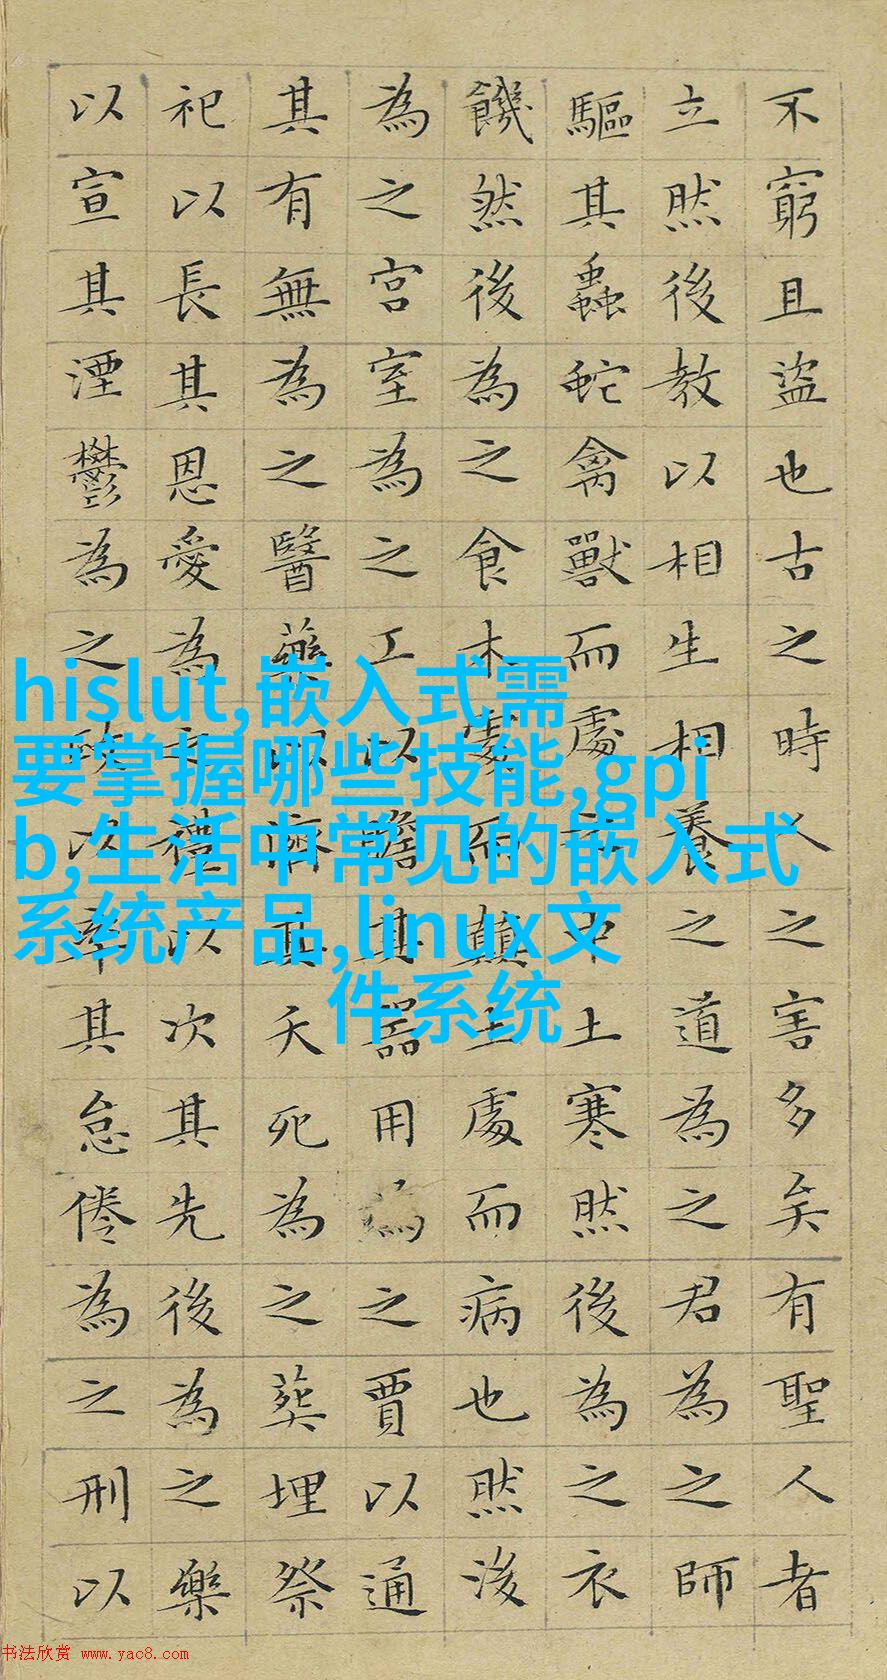 不窮且盜也古之時人之害多矣有聖人者
立然後教以相生相養之道為之君為之師
驅其蟲蛇禽獸而處之中土寒然後為之衣
饑然後為之食木處而顛土處而病也然後
為之宮室為之工以贍其器用為之賈以通
其有無為之醫藥以濟其夭死為之葬埋祭
祀以長其恩愛為之禮以次其先後為之樂
以宣其湮鬱為之政以率其怠倦為之刑以
hislut,嵌入式需
要掌握哪些技能,gpi
b,生活中常见的嵌入式
系统产品,linux文
件系统
书法欣赏 www.yac8.com